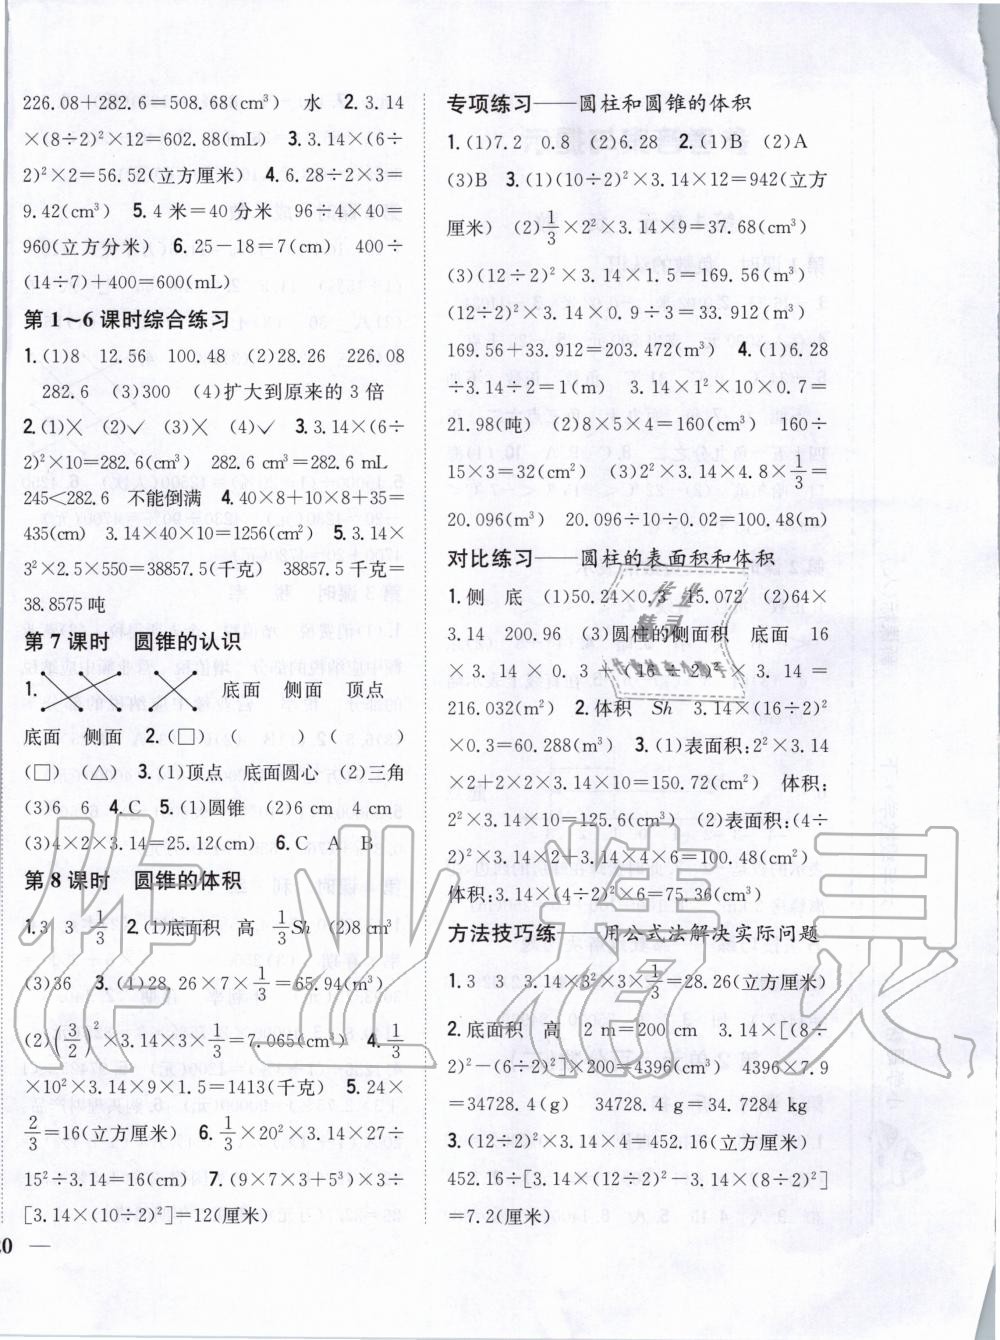 226.08+282.6=508.68(cm³) 水 2.3.14
×(8÷2)²×12=602.88(mL) 3.3.14×(6÷
2)²×2=56.52(立方厘米) 4.6.28÷2×3=
9.42(cm³) 5.4米=40分米 96÷4×40=
960(立方分米) 6.25-18=7(cm) 400÷
(14÷7)+400=600(mL)
第1~6课时综合练习
1.(1)8 12.56 100.48 (2)28.26 226.08
282.6 (3)300 (4)扩大到原来的3倍
2.(1)╳ (2)✓ (3)╳ (4)✓ 3.3.14×(6÷
2)²×10=282.6(cm³) 282.6 cm³=282.6 mL
245<282.6 不能倒满 4.40×8+10×8+35=
435(cm) 3.14×40×10=1256(cm²) 5.3.14×
3²×2.5×550=38857.5(千克) 38857.5千克=
38.8575吨
第7课时 圆锥的认识
1. 底面 侧面 顶点
底面 侧面 2.(□) ( ) ( )
(□) (△) 3.(1)顶点 底面圆心 (2)三角
(3)6 6 4.C 5.(1)圆锥 (2)6 cm 4 cm
(3)4×2×3.14=25.12(cm) 6.C A B
第8课时 圆锥的体积
1.3 3 1/3 2.(1)底面积 高 1/3Sh (2)8 cm³
(3)36 3.(1)28.26×7×1/3=65.94(m³)
(2)(3/2)²×3.14×3×1/3=7.065(cm³) 4.1/3
×10²×3.14×9×1.5=1413(千克) 5.24×
2/3=16(立方厘米) 6.1/3×20²×3.14×27÷
15²÷3.14=16(cm) 7.(9×7×3+5³)×3÷
[3.14×(10÷2)²]=12(厘米)
20 —
专项练习——圆柱和圆锥的体积
1.(1)7.2 0.8 (2)6.28 2.(1)B (2)A
(3)B 3.(1)(10÷2)²×3.14×12=942(立方
厘米) (2)1/3×2²×3.14×9=37.68(cm³)
(3)(12÷2)²×3.14×1.5=169.56(m³)
(12÷2)²×3.14×0.9÷3=33.912(m³)
169.56+33.912=203.472(m³) 4.(1)6.28
÷3.14÷2=1(m) 3.14×1²×10×0.7=
21.98(吨) (2)8×5×4=160(cm³) 160÷
15×3=32(cm²) (3)2²×3.14×4.8×1/3=
20.096(m³) 20.096÷10÷0.02=100.48(m)
对比练习——圆柱的表面积和体积
1.侧 底 (1)50.24×0.3 15.072 (2)64×
3.14 200.96 (3)圆柱的侧面积 底面 16
×3.14×0.3+(16÷2)²×3.14=
216.032(m²) 2.体积 Sh 3.14×(16÷2)²
×0.3=60.288(m³) 3.(1)表面积:2²×3.14
×2+2×2×3.14×10=150.72(cm²) 体积:
2²×3.14×10=125.6(cm³) (2)表面积:(4÷
2)²×3.14×2+3.14×4×6=100.48(cm²)
体积:3.14×(4÷2)²×6=75.36(cm³)
方法技巧练——用公式法解决实际问题
1.3 3 3.14×3²×3×1/3=28.26(立方厘米)
2.底面积 高 2 m=200 cm 3.14×[(8÷
2)²-(6÷2)²]×200=4396(cm³) 4396×7.9
=34728.4(g) 34728.4 g=34.7284 kg
3.(12÷2)²×3.14×4=452.16(立方厘米)
452.16÷[3.14×(12÷2)²-3.14×(8÷2)²]
=7.2(厘米)
作业精灵
作业
精灵